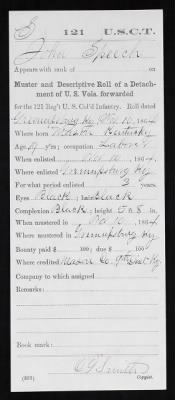 S 121 U.S.C.T.
John Speech
Appears with rank of on
Muster and Descriptive Roll of a Detach-
ment of U. S. Vols. forwarded
for the 121 Reg't U. S. Col'd Infantry. Roll dated
Greenupsburg Ky Oct 10, 1864
Where born Kentucky
Age y'rs; occupation Laborer
When enlisted Oct 10, 1864
Where enlisted Greenupsburg Ky
For what period enlisted 3 years
Eyes Black; hair Black
Complexion Black; height 5 ft. 8 in.
When mustered in Oct 10, 1864
Where mustered in Greenupsburg Ky
Bounty paid $ 100; due $ 100
Where credited Mason Co. 9 Dist Ky
Company to which assigned
Remarks:
Book mark:
Copyist.